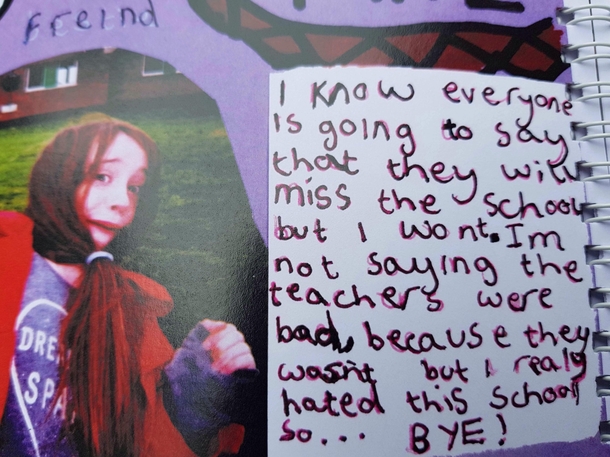 Freind
I know everyone
is going to say
that they will
miss the school
but I wont. Im
not saying the
teachers were
bad, because they
wasnt but I realy
hated this school
so... BYE!
DRE
SPA